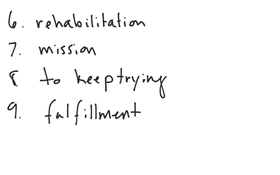 6. rehabilitation
7. mission
8 to keep trying
9. fulfillment